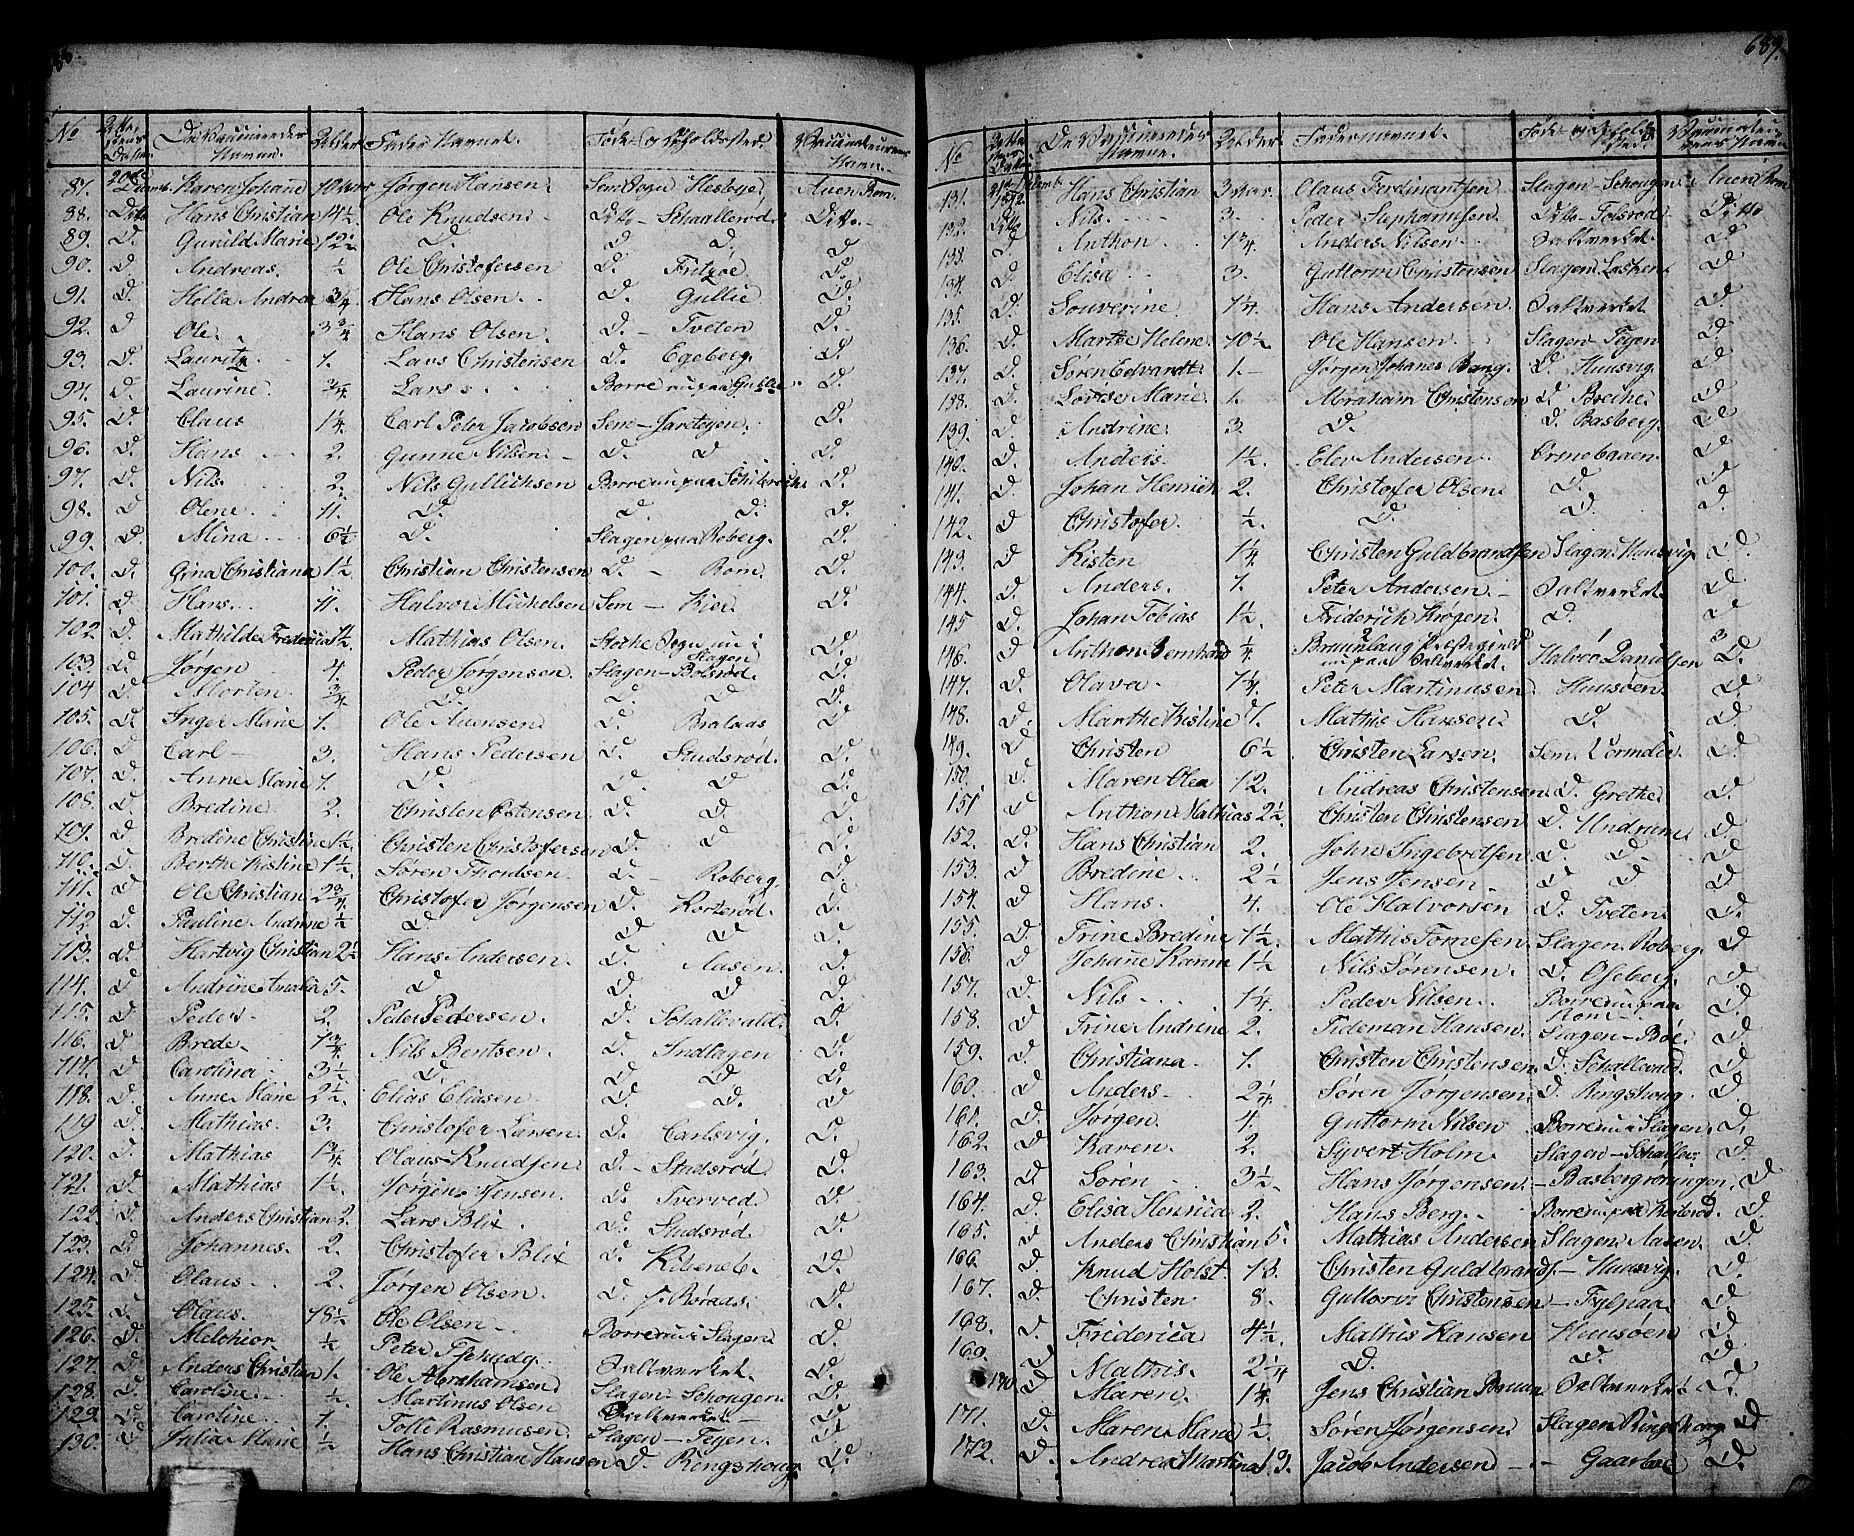 689.
No Attestens Datum De Vaccineredes Navne. Alder Faders Navnet. Føde- og Opholdssted. Vaccinateurens Navn.
87. Karen Johane 10 Aar Jørgen Hansen Sem Sogn Hesbye Auen Rom.
88. Ditto Hans Christian 4½ Ole Knudsen Ditto - Skaallerød. Ditto.
89. D. Gunild Marie 12½ D. D. D. D.
90. D. Andreas. ½ Ole Christofersen D. Fritzøe D.
91. D. Hella Andrea ¾ Hans Olsen D. Gullie D.
92. D Ole 3¾ Hans Olsen. D. - Tveten D.
93. D. Lauritz 1. Lars Christensen D. Egeberg. D.
94. D. Laurine ¾ Lars Borre nu paa D.
95. D. Claus 1¼ Carl Peter Jacobsen Sem - Jaretøyen. D.
96. D. Hans 2. Gunne Nilsen D. D D.
97. D. Nils. 2. Nils Gullichsen Borre nu paa D.
98. D Olene 11. D. D. D. D.
99. D. Mina 6½ D. Slagen paa Roberg. D.
100. D. Gina Christiana 1½ Christian Christensen D. - Rom. D.
101. D. Hans. 11. Halvor Michelsen Sem - Kier D.
102 D. Mathilde Fredericia 1½ Mathias Olsen Stokke Sogn nu i Slagen D.
103. D. Jørgen 4. Peder Jørgensen Slagen - Bolsrød. D.
104 D. Morten ¾ D. D. D. D.
105. D. Inger Marie 1. Ole Auensen D. Bralaas D
106. D Carl 3. Hans Pedersen D Studsrød. D.
107. D. Anne Marie 1. D. D. D D.
108. D. Bredine 2. Christen Østensen D. D D.
109. D. Bredine Christine 1½ Christen Christofersen D. D D.
110. D. Berthe Kistine 1½ Søren Thordsen D. - Roberg. D.
111. D. Ole Christian 2¾ Christofer Jørgensen D. Korterød. D.
112. D. Pauline Andrine ½ D. D. D D.
113. D. Hartvig Christian 2½ Hans Andersen. D. Aasen D.
114. D. Andrine Amalia 5. D D. D. D.
115. D. Peder 2. Peder Pedersen. D. Schallevald D.
116. D. Brede 1¾ Nils Bentsen. D. Indlagen D.
117. D. Carolina 3½ D. D. D. D.
118. D. Anne Marie 2½ Elias Eliasen D. D. D.
119 D. Mathias. 3. Christofer Larsen. D. Carlsvig. D.
120. D. Mathias 1¾ Olaus Knudsen D. - Studsrød D.
121. D. Mathias 1½ Jørgen Jensen. D. Tverved D.
122. D. Anders Christian 2. Lars Blix. D. Studsrød D.
123. D. Johannes. 2. Christofer Blix D. Kibeneb. D.
124. D. Olaus 2. Jørgen Olsen. D. Røraas. D.
125. D. Olaus. 18½ Ole Olsen Borre nu i Slagen D.
126. D. Melchior ½ Peter Tscudy. Saltværket. D.
127. D. Anders Christian 1. Ole Abrahamsen Slagen - Schougen D.
128. D. Caroline ½ Martinus Olsen Saltværket D.
129. D. Caroline 1. Tolle Rasmusen. Slagen - Teyen. D.
130. D. Julia Marie ½ Hans Christian Hansen D. Ringshoug. D.
No De Vaccineredes Navne. Alder Fadernavnet. Føde- og Opholdssted. Vaccinateurens Navn
131. Hans Christian 3 Aar. Olaus Ferdinantsen Slagen - Schougen Auen Rom
132. Ditto Nils. 3. Peder Stephansen. Ditto - Tolsrød Ditto
133. D Anthon 1¾ Anders Nilsen Saltværket D
134. D. Elisa 3. Guttorm Christensen Slagen Lasken D
135. D. Souverine 1¼ Hans Andersen. Saltværket D.
136. D. Marthe Helene 10½ Ole Hansen Slagen - Teyen D.
137. D. Søren Edvardt. 1. Jørgen Johanes Bang. D. Huusvig. D
138. D. Lovise Marie 1. Abraham Christensen D. Breche D
139. D. Andrine. 3. D. D. Basberg. D
140. D. Anders. 1½ Elev Andersen Ormebaaen. D
141. D. Johan Henrich 2. Christofer Olsen. D. D
142. D Christofer. ½. D. D. D.
143. D Kisten 1¼ Christen Guldbrandsen Slagen Huusvig D.
144. D. Anders. 1. Peter Andersen. Saltværket D
145 D. Johan Tobias 1½ Friderich Krogen D. D.
146. D Anthon Bernhard ¼ Præstegield nu paa Saltværket. Halvor Danielsen D.
147. D. Olava 1¼ Peter Martinusen Huusøen. D
148. D. Marthe Kistine 7. Mathis Hansen. D. D
149. D. Christen 6½ Christen Larsen. Sem. D.
150. D. Maren Olea 12. Andreas Christensen D. Grethe D.
151 D. Anthon Mathias 2½. Christen Christensen D. Undrum D.
152. D. Hans Christian 2. John Ingebretsen D. D. D.
153. D. Bredine 2½ Jens Jensen D D D.
154. D. Hans. 4. Ole Halvorsen D. Tveten D.
155. D. Trine Bredine 1½ Mathis Tomesen Slagen Roberg D
156. D Johane Karine 1½ Nils Sørensen. D. Oseberg. D
157. D. Nils 1¼ Peder Nilsen Borre nu paa Rom D.
158. D. Trine Andrine 2. Tideman Hansen Slagen - Bøe D.
159. D. Christiana 1. Christen Christensen D. Schallevald D.
160. D. Anders 2¼ Søren Jørgensen D. Ringshoug. D.
161. D. Jørgen. 4. Guttorm Nilsen Borre nu i Slagen. D.
162. D. Karen 2. Syvert Holm Slagen - D.
163. D. Søren 3½ Hans Jørgensen. Basbergrøningen. D.
164. D. Elisa Henrica 2. Hans Berg. Borre nu paa Korterød. D.
165. D Anders Christian 5. Mathias Andersen Slagen Aasen. D.
166. D. Knud Holst. 13. Christen Guldbrands. - Huusvig. D.
167. D. Christen 8. Guttorm Christensen - Fylpaa D
168. D. Friderica 4½ Mathis Hansen Huusøen D.
169. D. Mathis. 2¼ D. D. D.
170 D. Maren. 1¼ Jens Christian Bruun Saltværket D.
171. D. Maren Marie ½ Søren Jørgensen Slagen Ringshoug D
172. D. Andrea Martina 19. Jacob Andersen Gaarboe D.